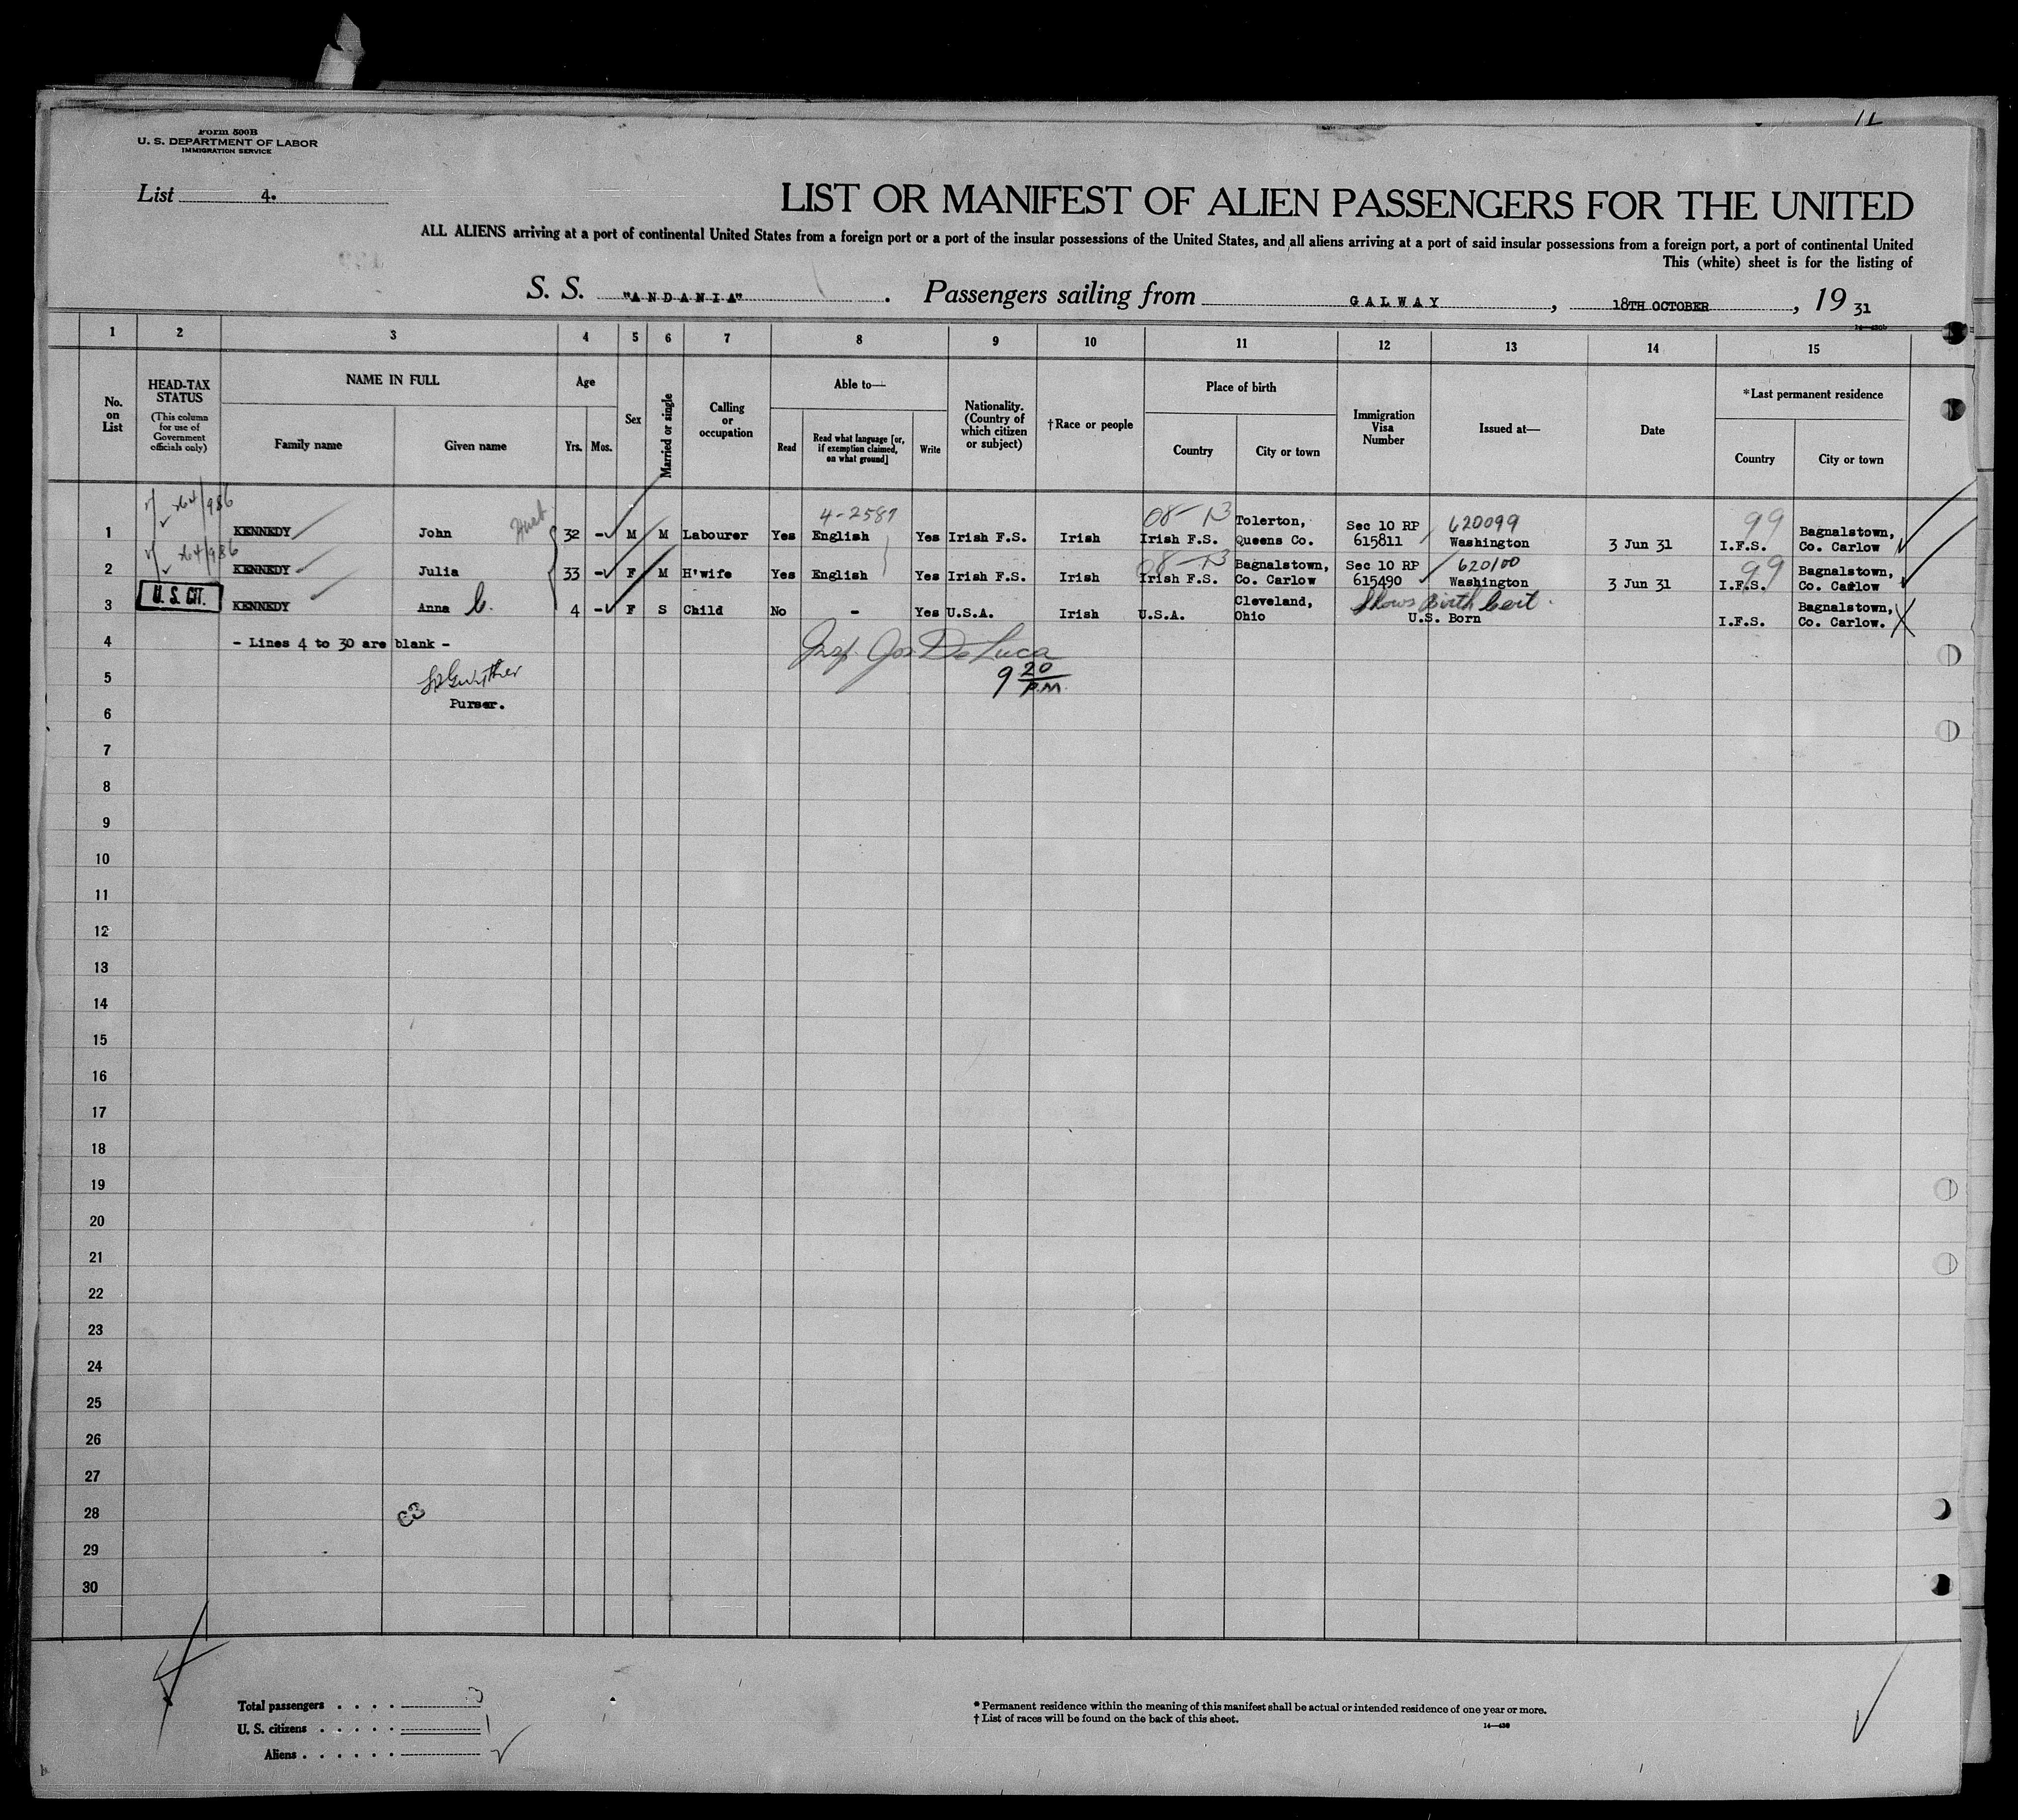 Form 500B
U. S. DEPARTMENT OF LABOR
IMMIGRATION SERVICE
List 4.
LIST OR MANIFEST OF ALIEN PASSENGERS FOR THE UNITED
ALL ALIENS arriving at a port of continental United States from a foreign port or a port of the insular possessions of the United States, and all aliens arriving at a port of said insular possessions from a foreign port, a port of continental United
This (white) sheet is for the listing of
S. S. "ANDANIA". Passengers sailing from GALWAY, 18TH OCTOBER, 19 31
1 2 3 4 5 6 7 8 9 10 11 12 13 14 15
No. on List
HEAD-TAX STATUS (This column for use of Government officials only)
NAME IN FULL
Family name Given name
Age
Yrs. Mos.
Sex
Married or single
Calling or occupation
Able to—
Read Read what language [or, if exemption claimed, on what ground] Write
Nationality. (Country of which citizen or subject)
†Race or people
Place of birth
Country City or town
Immigration Visa Number
Issued at—
Date
*Last permanent residence
Country City or town
1 x64/986 KENNEDY John 32 - M M Labourer Yes 4-2587 English Yes Irish F.S. Irish 08-13 Irish F.S. Tolerton, Queens Co. Sec 10 RP 615811 620099 Washington 3 Jun 31 99 I.F.S. Bagnalstown, Co. Carlow
2 x64/986 KENNEDY Julia 33 - F M H'wife Yes English Yes Irish F.S. Irish 08-13 Irish F.S. Bagnalstown, Co. Carlow Sec 10 RP 615490 620100 Washington 3 Jun 31 99 I.F.S. Bagnalstown, Co. Carlow
3 U. S. CIT. KENNEDY Anna C. 4 - F S Child No - Yes U.S.A. Irish U.S.A. Cleveland, Ohio Shows Birth Cert. U.S. Born I.F.S. Bagnalstown, Co. Carlow.
4 - Lines 4 to 30 are blank - Insp. Jos De Luca
5 9 20 P.M.
Purser.
6
7
8
9
10
11
12
13
14
15
16
17
18
19
20
21
22
23
24
25
26
27
28
29
30
Total passengers . . . . 3
U. S. citizens . . . . . 1
Aliens . . . . . .
* Permanent residence within the meaning of this manifest shall be actual or intended residence of one year or more.
† List of races will be found on the back of this sheet.